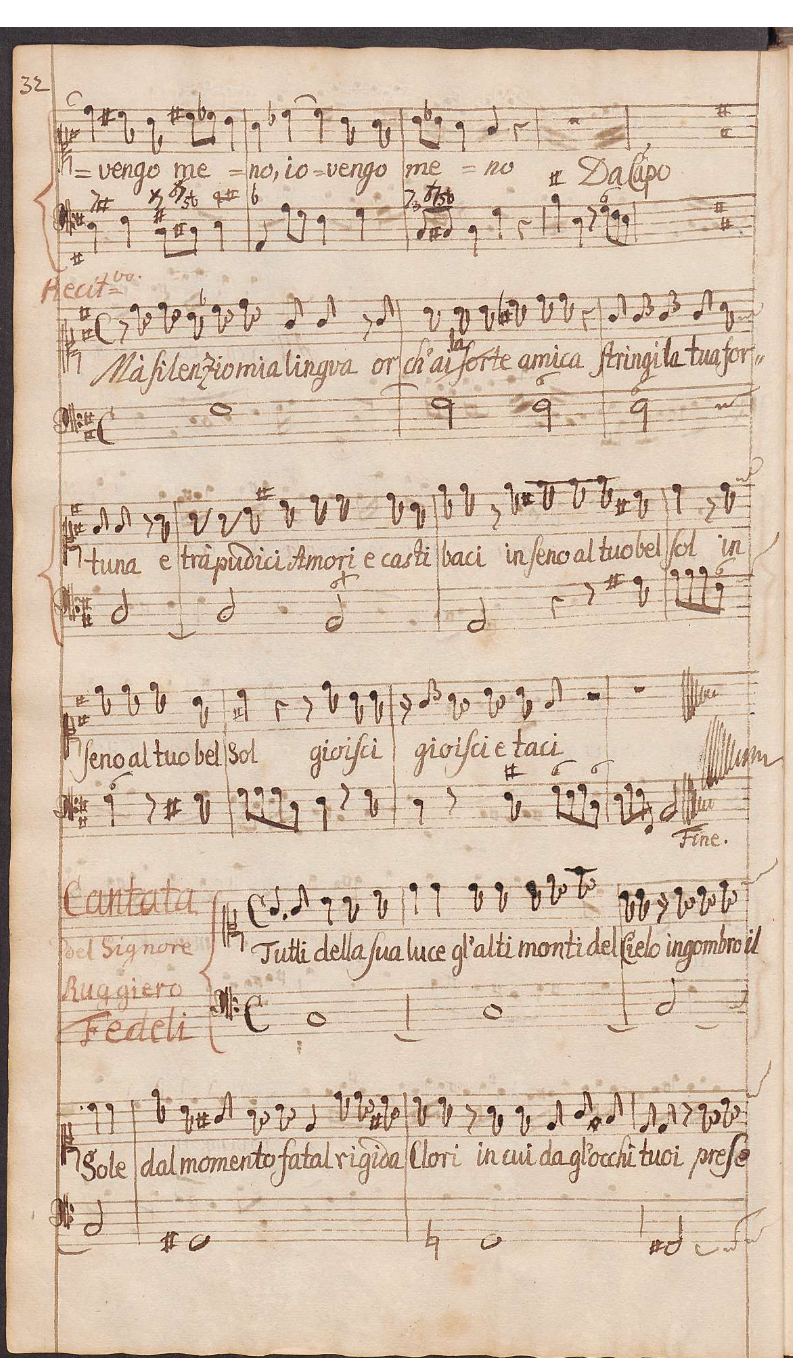 32
= vengo me = no, io = vengo me = no Da Capo
Recit.vo
Mà silenzio mia lingva or ch'ai la sorte amica stringi la tua for=
tuna e trà pudici Amori e casti baci in seno al tuo bel sol in
seno al tuo bel Sol gioisci gioisci e taci
Fine.
Cantata
del Signore
Ruggiero
Fedeli
Tutti della sua luce gl'alti monti del Cielo ingombro il
Sole dal momento fatal rigida Clori in cui da gl'occhi tuoi prese